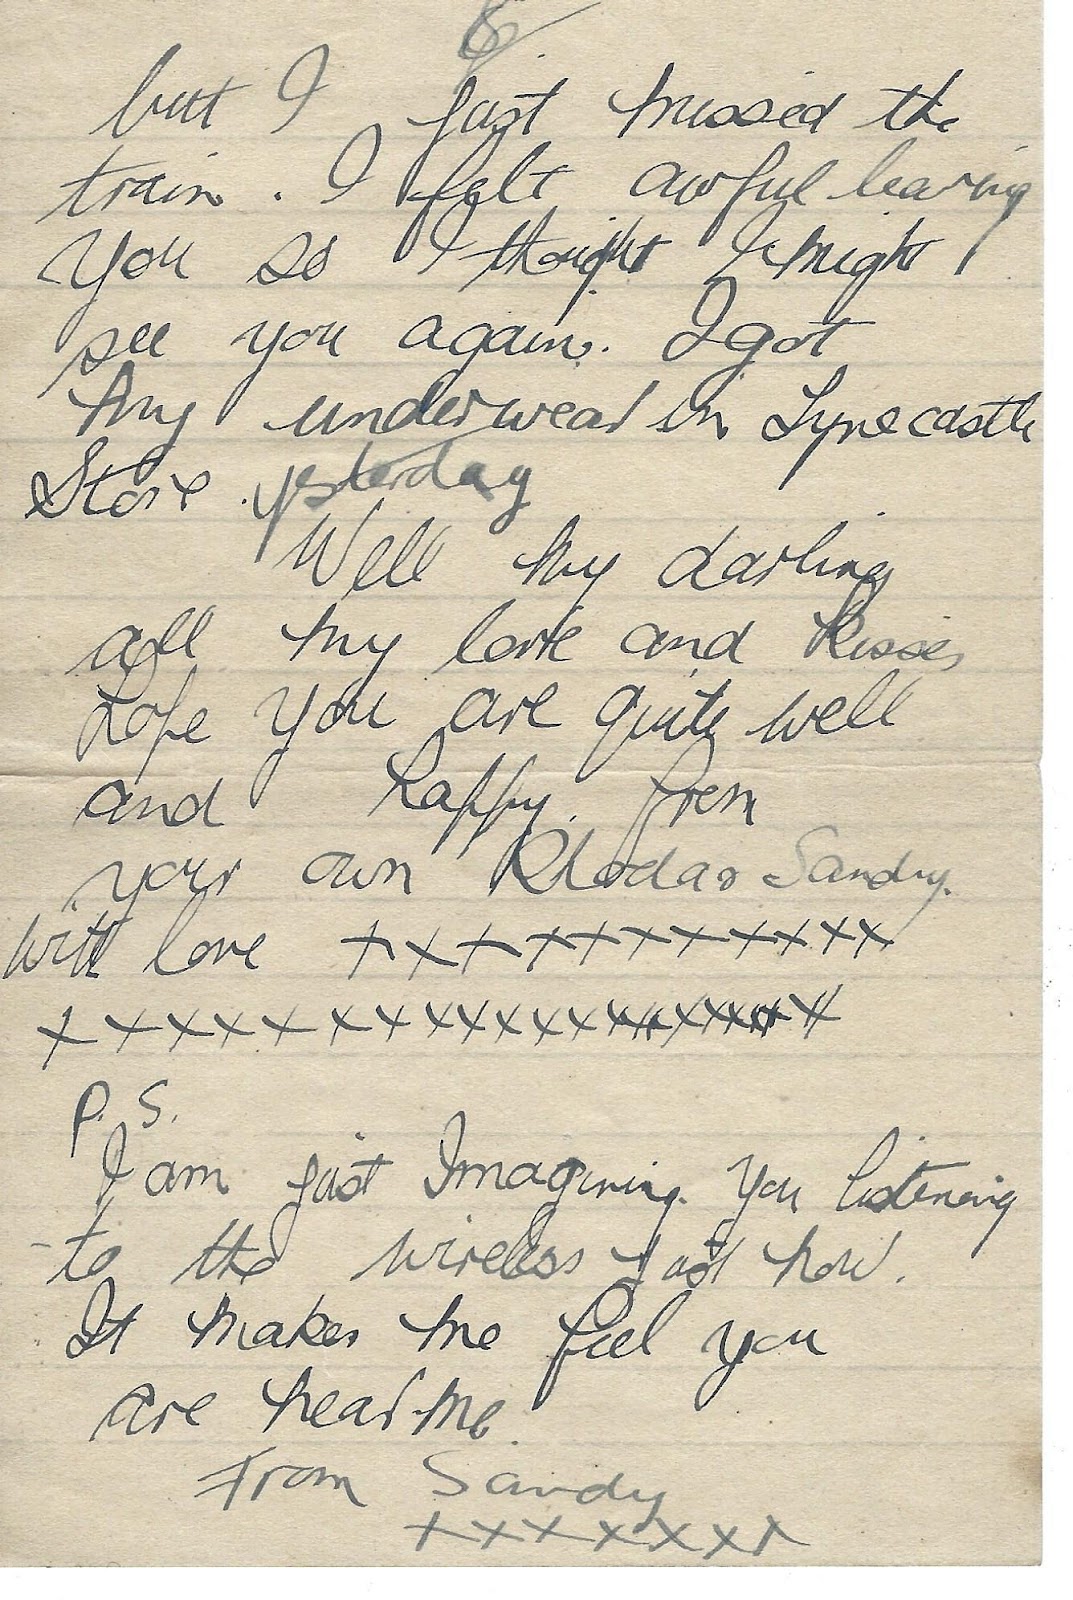 6
but I just missed the
train. I felt awful leaving
you so I thought I might
see you again. I got
my underwear in Tynecastle
Store yesterday
Well my darling
all my love and kisses
hope you are quite well
and happy. from
your own Rhodas Sandy.
With love xxxxxxxxxxx
xxxxxxxxxxxxxxxxxx
P.S.
I am just Imagining you listening
to the wireless just now.
It makes me feel you
are near me.
From Sandy
xxxxxxx